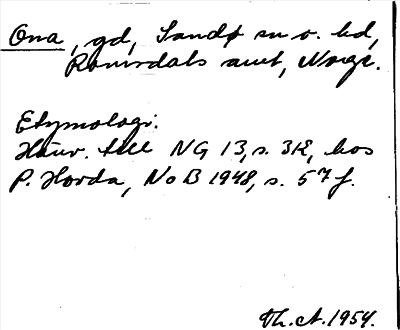 Ona, gd, Sandø sn o. hd,
Romsdals amt, Norge.
Etymologi:
Hänv. till NG 13, s. 312, hos
P. Hovda, NoB 1948, s. 57 f.
Th. A. 1954.